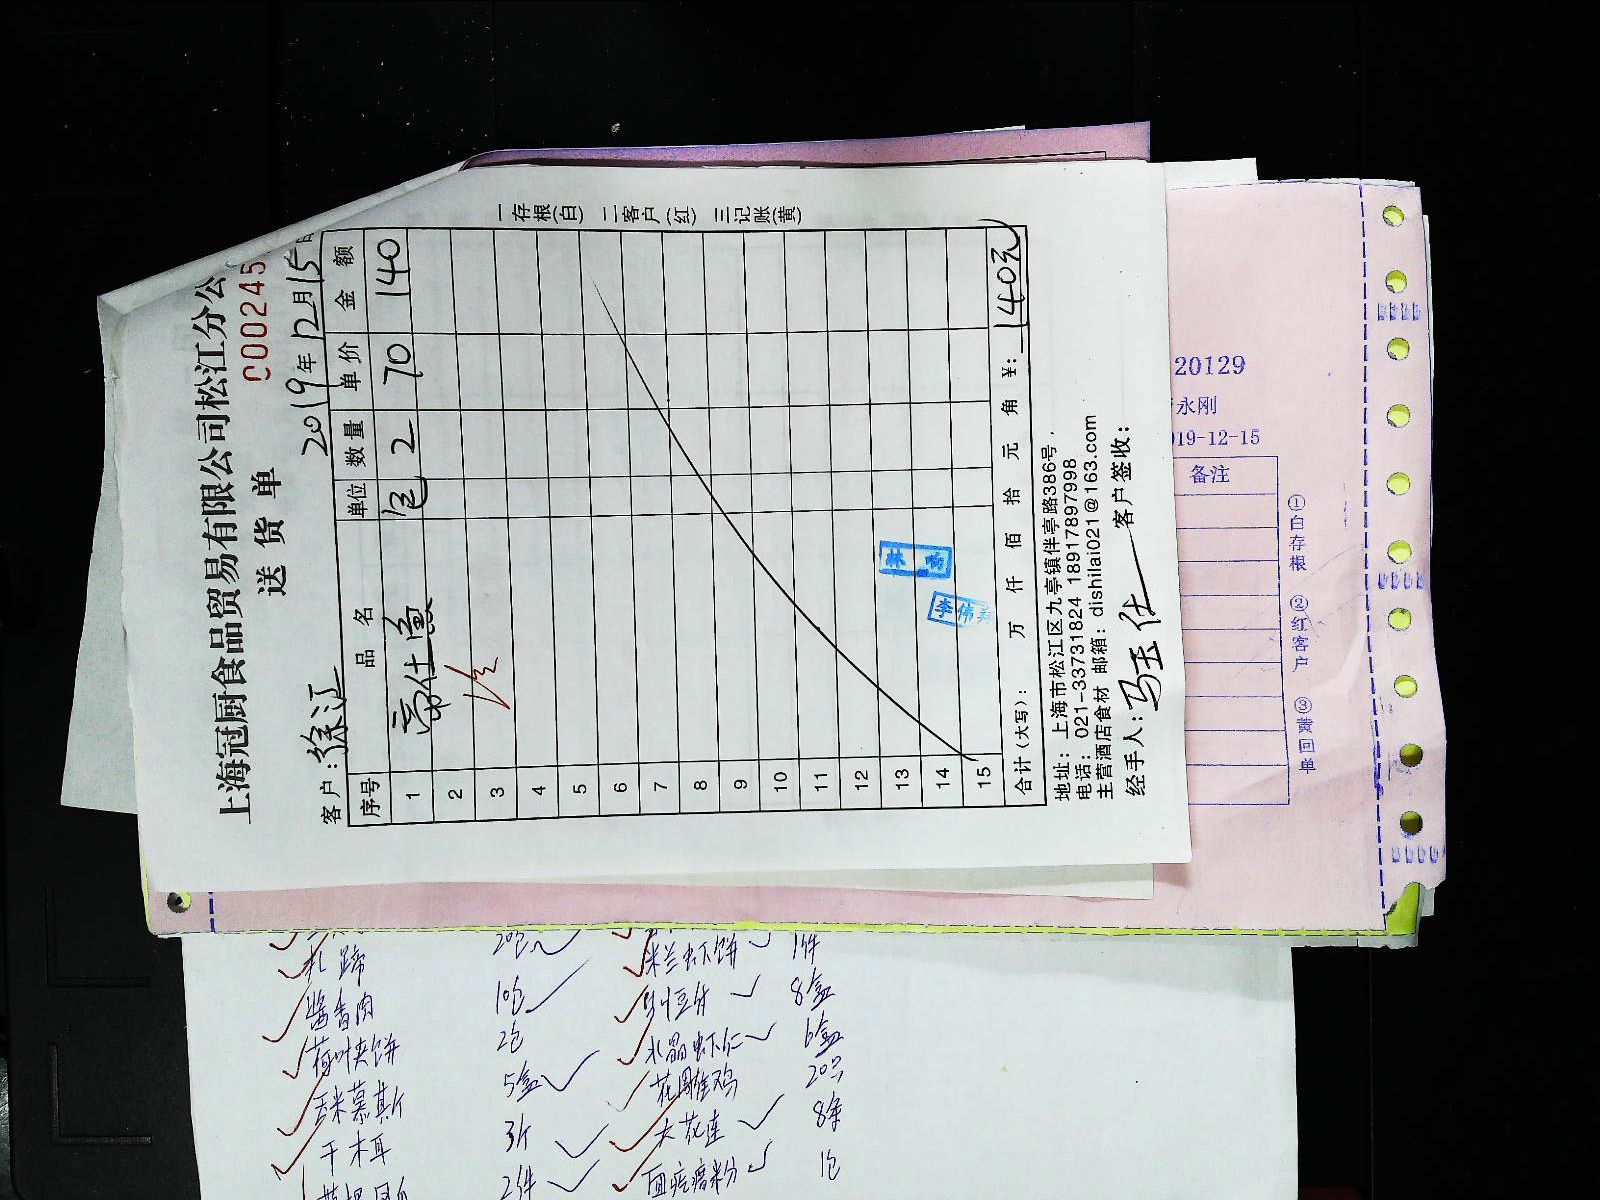 上海冠厨食品贸易有限公司松江分公
送货单
C00245
客户：徐汇
2019年12月15日
序号 品名 单位 数量 单价 金额
1 帝仕鱼 包 2 70 140
2
3
4
5
6
7
8
9
10
11
12
13
14
15
合计（大写）： 万 仟 佰 拾 元 角 ¥：140元
地址：上海市松江区九亭镇伴亭路386号
电话：021-33731824 18917897998
主营酒店食材 邮箱：dishilai021@163.com
经手人：马玉仕 客户签收：
一存根(白) 二客户(红) 三记账(黄)
20129
永刚
19-12-15
备注
①白存根 ②红客户 ③黄回单
扎蹄 20包
酱香肉 10包
荷叶夹饼 2包
香米慕斯 5盒
干木耳 3斤
2件
米兰虾饼 1件
8盒
水晶虾仁 6盒
花雕鸡 20只
大花莲 8条
1包